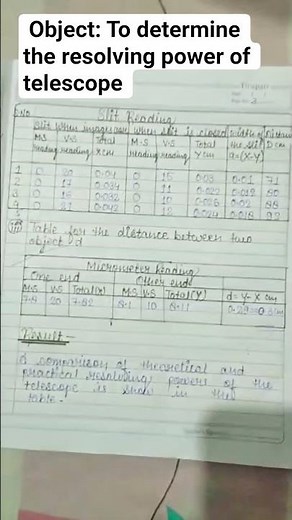 Object: To determine
the resolving power of
telescope
S.No. Slit Reading
Slit when image when slit is closed width of Distance
M.S V.S Total M.S V.S Total the slit D cm
reading reading X cm reading reading Y cm d=(X-Y)
1 0 20 0.04 0 15 0.03 0.01 71
2 0 17 0.034 0 11 0.022 80
3 0 16 0.032 0 10 0.02
4 0 21 0.042 0 12 0.024 0.018 92
5
(III) Table for the distance between two
object 'd
Micrometer Reading
One end Other end
M.S V.S Total(X) M.S V.S Total(Y) d= Y- X cm
7.8 20 7.82 8.1 10 8.11
Result -
A comparison of theoretical and
practical resolving power of the
telescope is show in the
table -